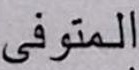 المتوفى